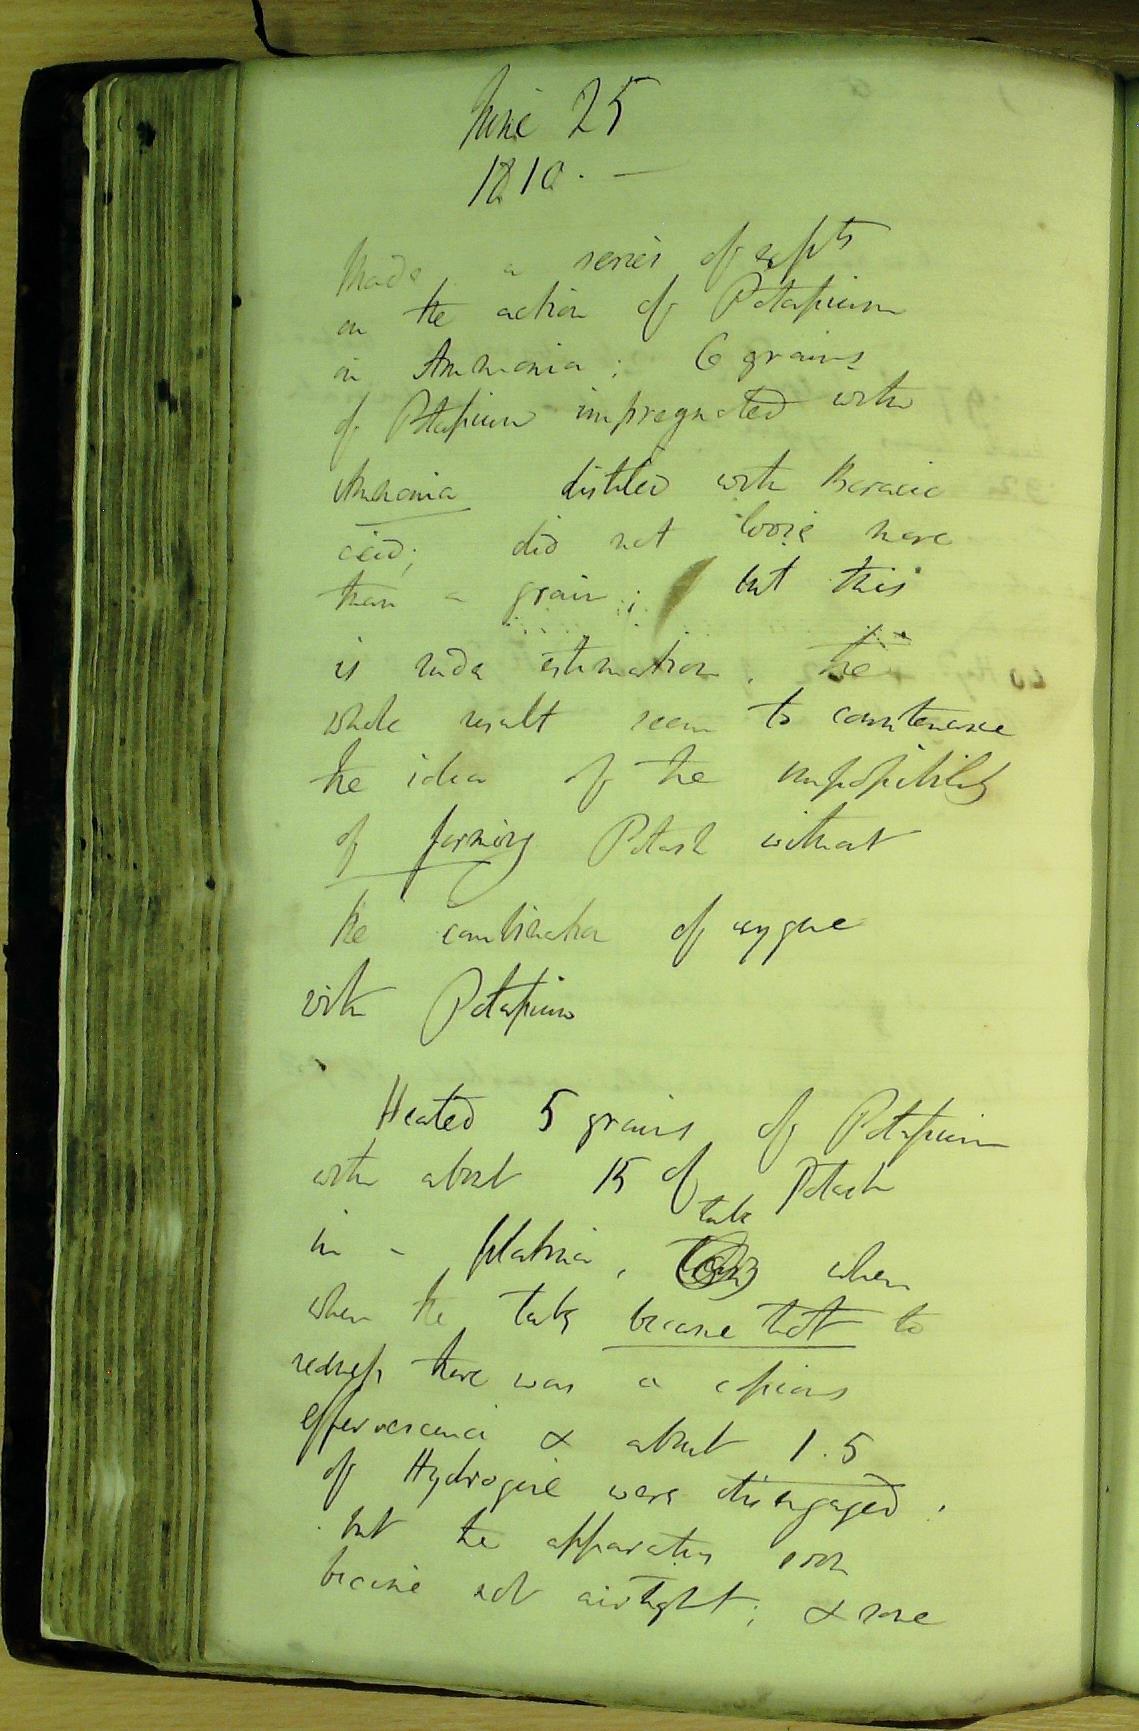 June 25
1810. —
Made a series of expts
on the action of Potassium
in Ammonia; 6 grains
of Potassium impregnated with
Ammonia distilled with Boracic
acid; did not loose more
than a grain; but this
is rude estimation. The
whole result seem to countenance
the idea of the impossibility
of forming Potash without
the combination of oxygene
with Potassium
Heated 5 grains of Potassium
with about 15 of Potash
tube
in a platina, when
when the tube became hot to
redness there was a copious
effervescence & about 1.5
of Hydrogene were disengaged.
but the apparatus soon
became not airtight; & some